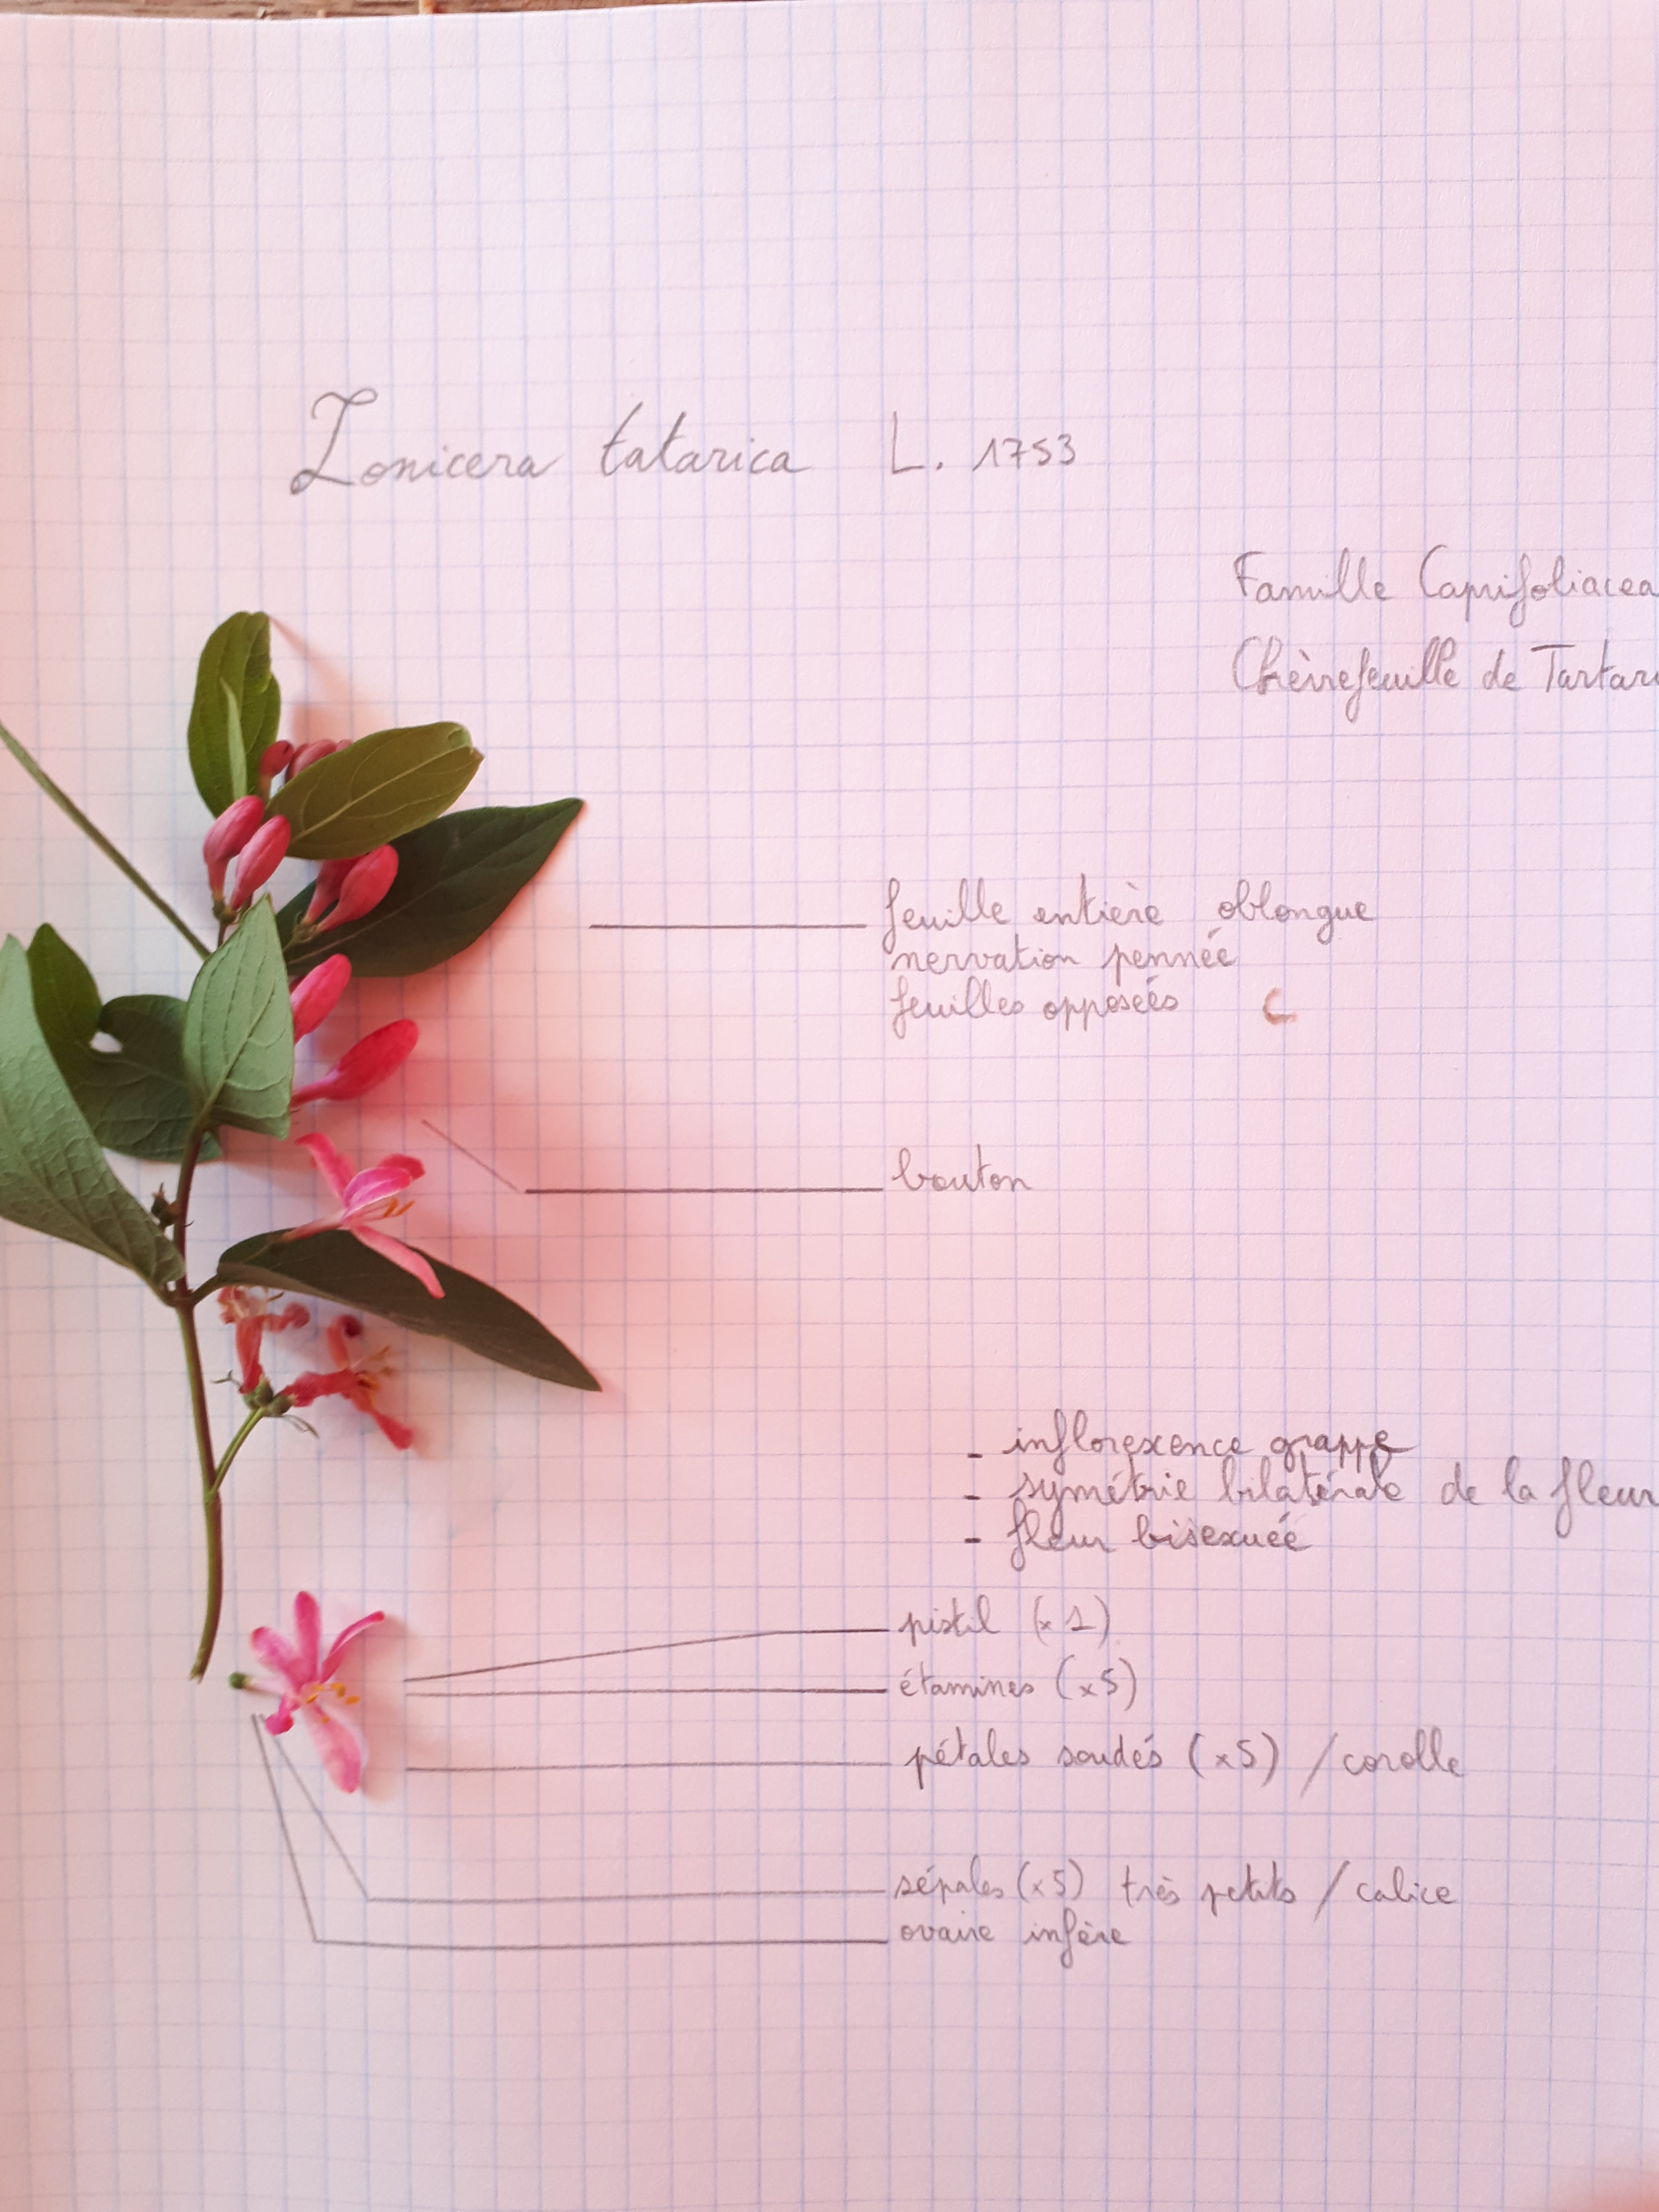 Lonicera tatarica L. 1753
Famille Caprifoliacea
Chèvrefeuille de Tartari
feuille entière oblongue
nervation pennée
feuilles opposées C
bouton
- inflorexence grappe
- symétrie bilatérale de la fleur
- fleur bisexuée
pistil (x 1)
étamines (x5)
pétales soudés (x5) / corolle
sépales (x5) très petits / calice
ovaire infère